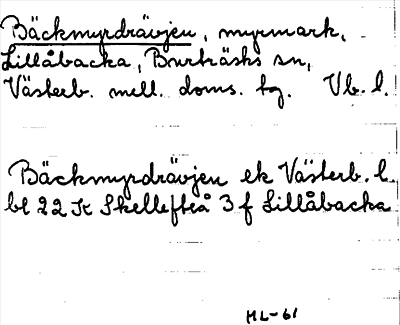 Bäckmyrdrävjen, myrmark,
Lillåbacka, Burträsks sn,
Västerb. mell. doms. tg. Vb. l.
Bäckmyrdrävjen ek Västerb. l.
bl 22 K Skellefteå 3 f Lillåbacka
HL-61